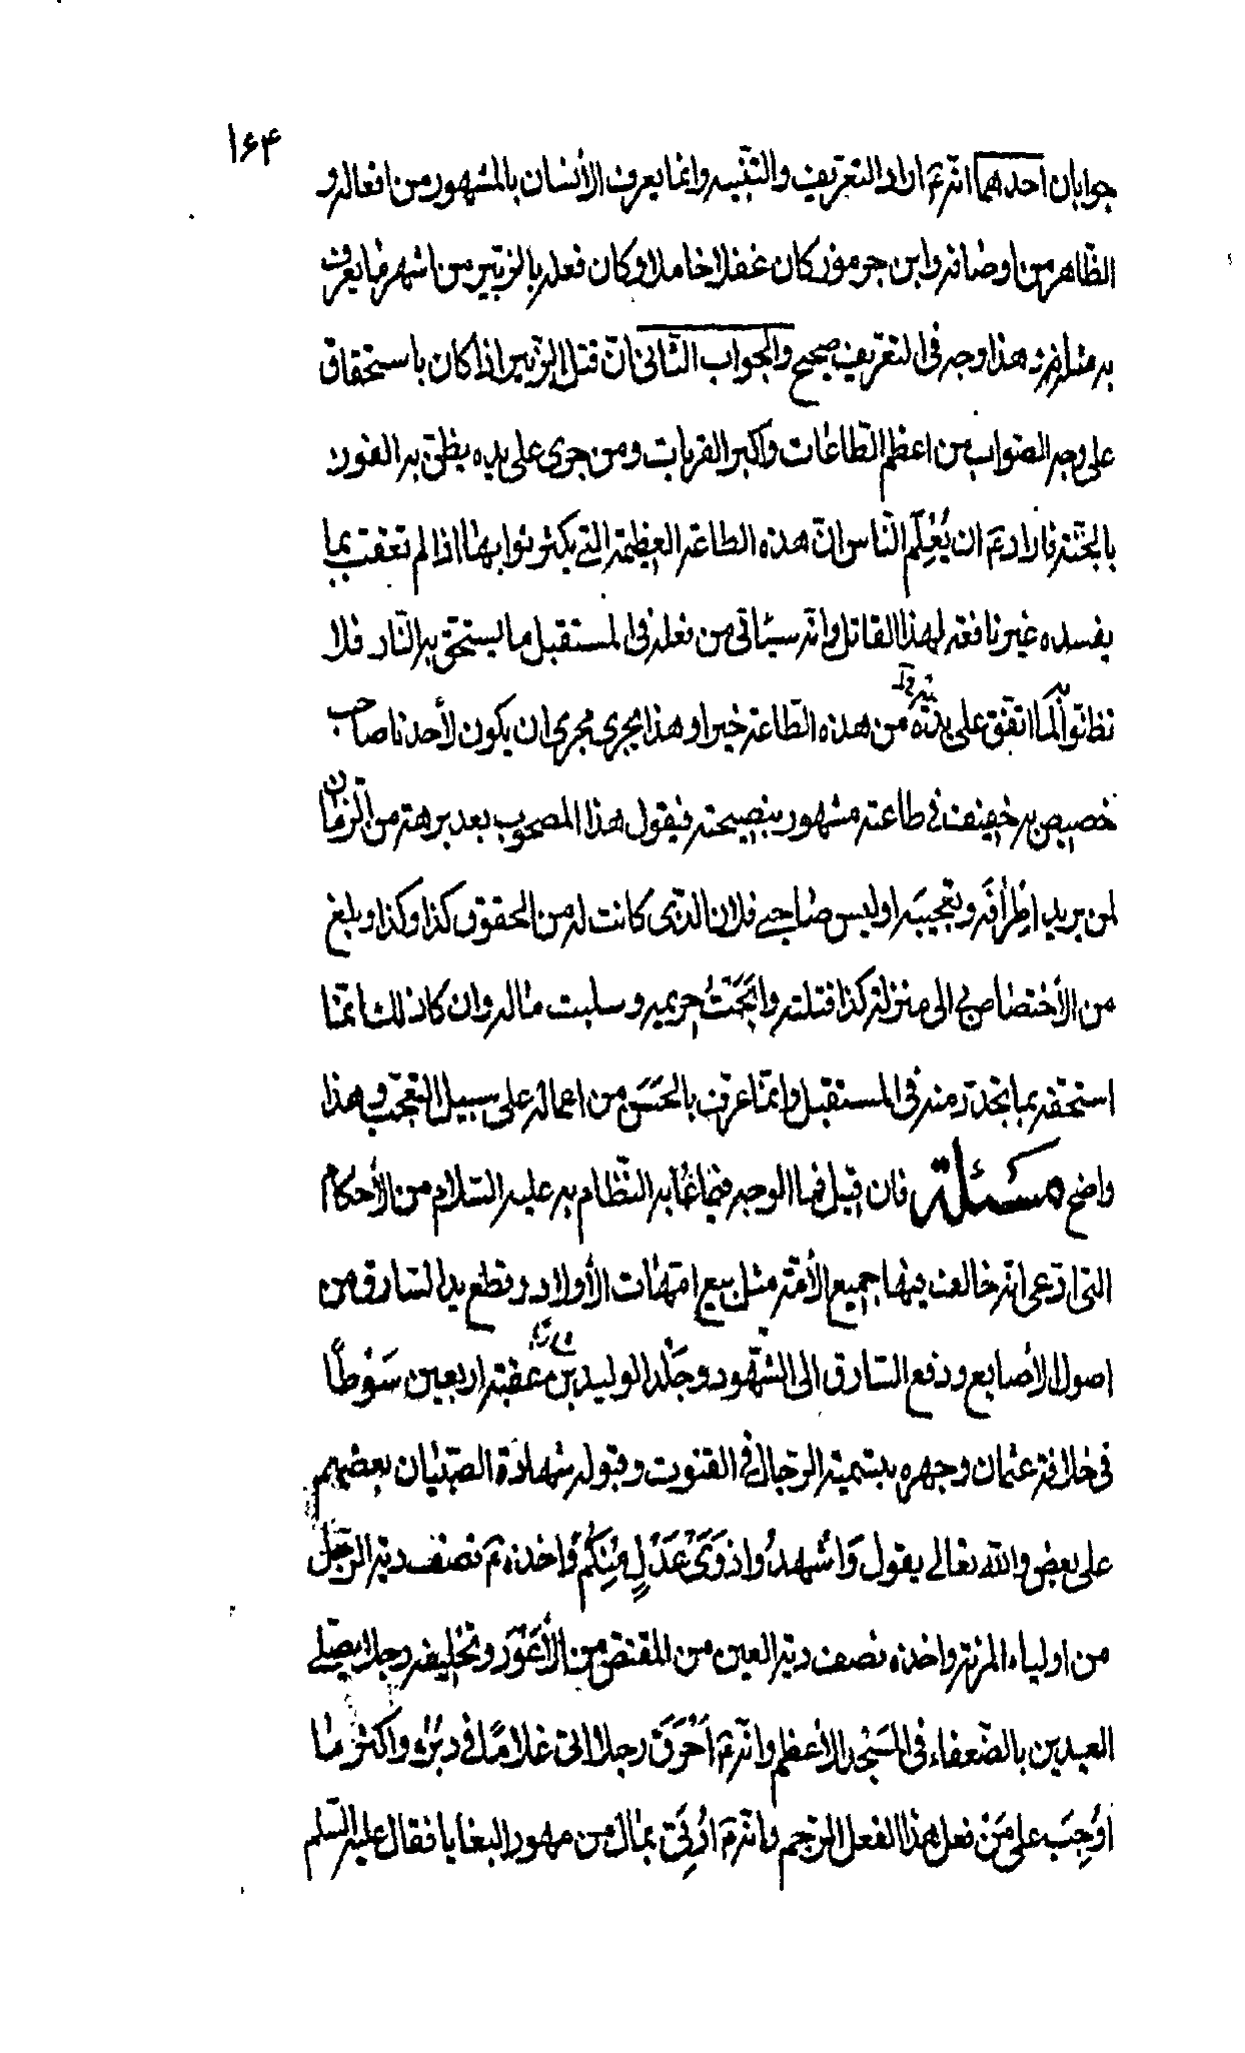 ۱۶۴
جوابان احدهما انّه ع اراد التعريف والتنبيه وانما يعرف الأنسان بالمشهور من افعاله و
الظّاهر من اوصافه وابن جرموز كان غفلا خاملا وكان فعله بالزّبير من اشهر ما يعرف
به مثله وهذا وجه فى التعريف صحيح والجواب الثّانى انّ قتل الزّبير اذا كان باستحقاق
على وجه الصّواب من اعظم الطّاعات واكبر القربات ومن جرى على يده يظنّ به الفوز
بالجنّة فاراد ع ان يُعْلِم النّاس انّ هذه الطاعة العظيمة التى يكثر ثوابها اذا لم تعقّب بما
يفسده غير نافعة لهذا القاتل وانّه سيأتى من فعله فى المستقبل ما يستحقّ به النّار فلا
تظنّوا به لما اتّفق على يده من هذه الطّاعة خيرا وهذا يجرى مجرى ان يكون لأحدنا صاحب
خصيص به خفيف فى طاعته مشهور بنصيحته فيقول هذا المصحوب بعد برهة من الزّمان
لمن يريد اطرافَه وتعجيبَه اوليس صاحبى فلان الذى كانت له من الحقوق كذا وكذا وبلغ
من الأختصاص بى الى منزلة كذا قتلته وابَحْتُ حريمه وسلبت ماله وان كان ذلك انّما
استحقّه بما تجدّد منه فى المستقبل وانّما عرف بالحَسَنِ من اعماله على سبيل التعجّب وهذا
واضح مسئلة فان قيل فما الوجه فيما عابه النّظّام به عليه السّلام من الأحكام
التى ادّعى انّه خالف فيها جميع الأمّة مثل بيع امّهات الأولاد وقطع يد السّارق من
اصول الأصابع ودفع السّارق الى الشّهود وجَلْد الوليد بن عقبة اربعين سَوْطًا
فى خلافة عثمان وجهره بتسمية الرّجال فى القنوت وقبوله شهادة الصّبيان بعضهم
على بعض والله تعالى يقول وَاَشْهِدُوا ذَوَىْ عَدْلٍ مِنْكُمْ واخذه ع نصف دية الرّجل
من اولياء المرئة واخذه نصف دية العين من المقتصّ من الأعْوَر وتخليفه رجلا يصلّى
العيدين بالضّعفاء فى المسجد الأعظم وانّه ع اَحْرَقَ رجلا اتى غلامًا فى دبره واكثر ما
اُوْجِبَ على مَنْ فعل هذا الفعل الرّجم وانّه ع اُوتِىَ بمال من مهور البغايا فقال عليه السّلم